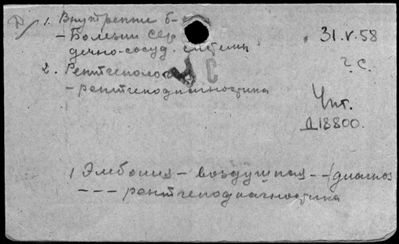 1. Внутренние б-
- Болезни сер
дечно-сосуд. системы
31.V.58
2. Рентгенолог
г. С.
- рентгенодиагностика
Чит.
Д18800.
1 Эмболия - воздушная - - (диагноз
- - - рентгенодиагностика